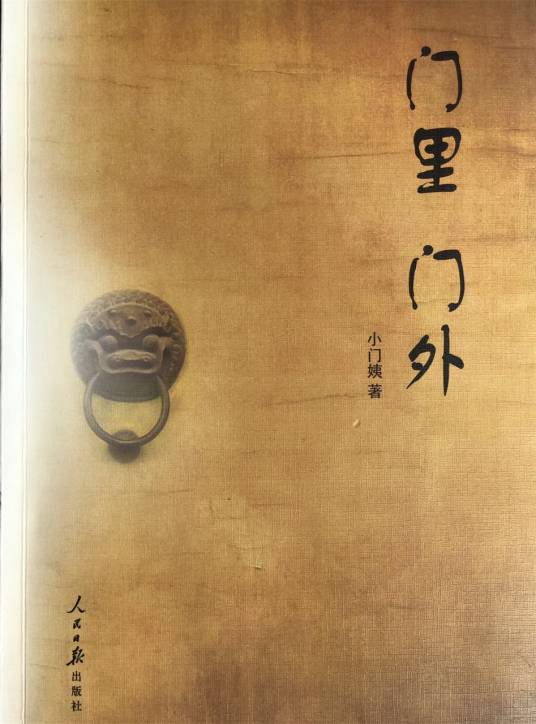 门里 门外
小门姨 著
人民日报出版社